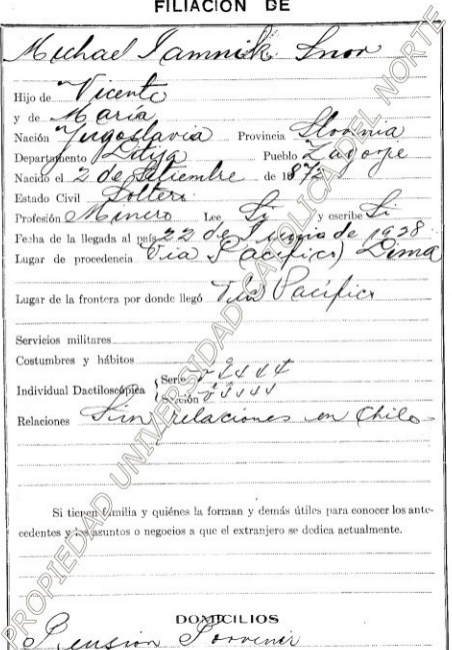 FILIACION DE
Michael Jamnik Snor
Hijo de Vicente
y de María
Nación Yugoslavia Provincia Slovnia
Departamento Litija Pueblo Zagorje
Nacido el 2 de Setiembre de 1872
Estado Civil Soltero
Profesión Minero Lee Si y escribe Si
Fecha de la llegada al país 22 de Junio de 1928
Lugar de procedencia Via Pacifico) Lima
Lugar de la frontera por donde llegó Via Pacifico
Servicios militares
Costumbres y hábitos
Individual Dactiloscópica Serie 4444
Sección
Relaciones Sin relaciones en Chile
Si tienen familia y quiénes la forman y demás útiles para conocer los ante-
cedentes y los asuntos o negocios a que el extranjero se dedica actualmente.
DOMICILIOS
Pension Porvenir
PROPIEDAD UNIVERSIDAD CATOLICA DEL NORTE